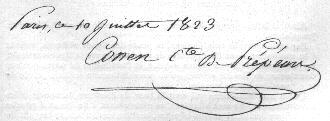 Paris, ce 10 Juillet 1823
Conen Cte De Prépéan.